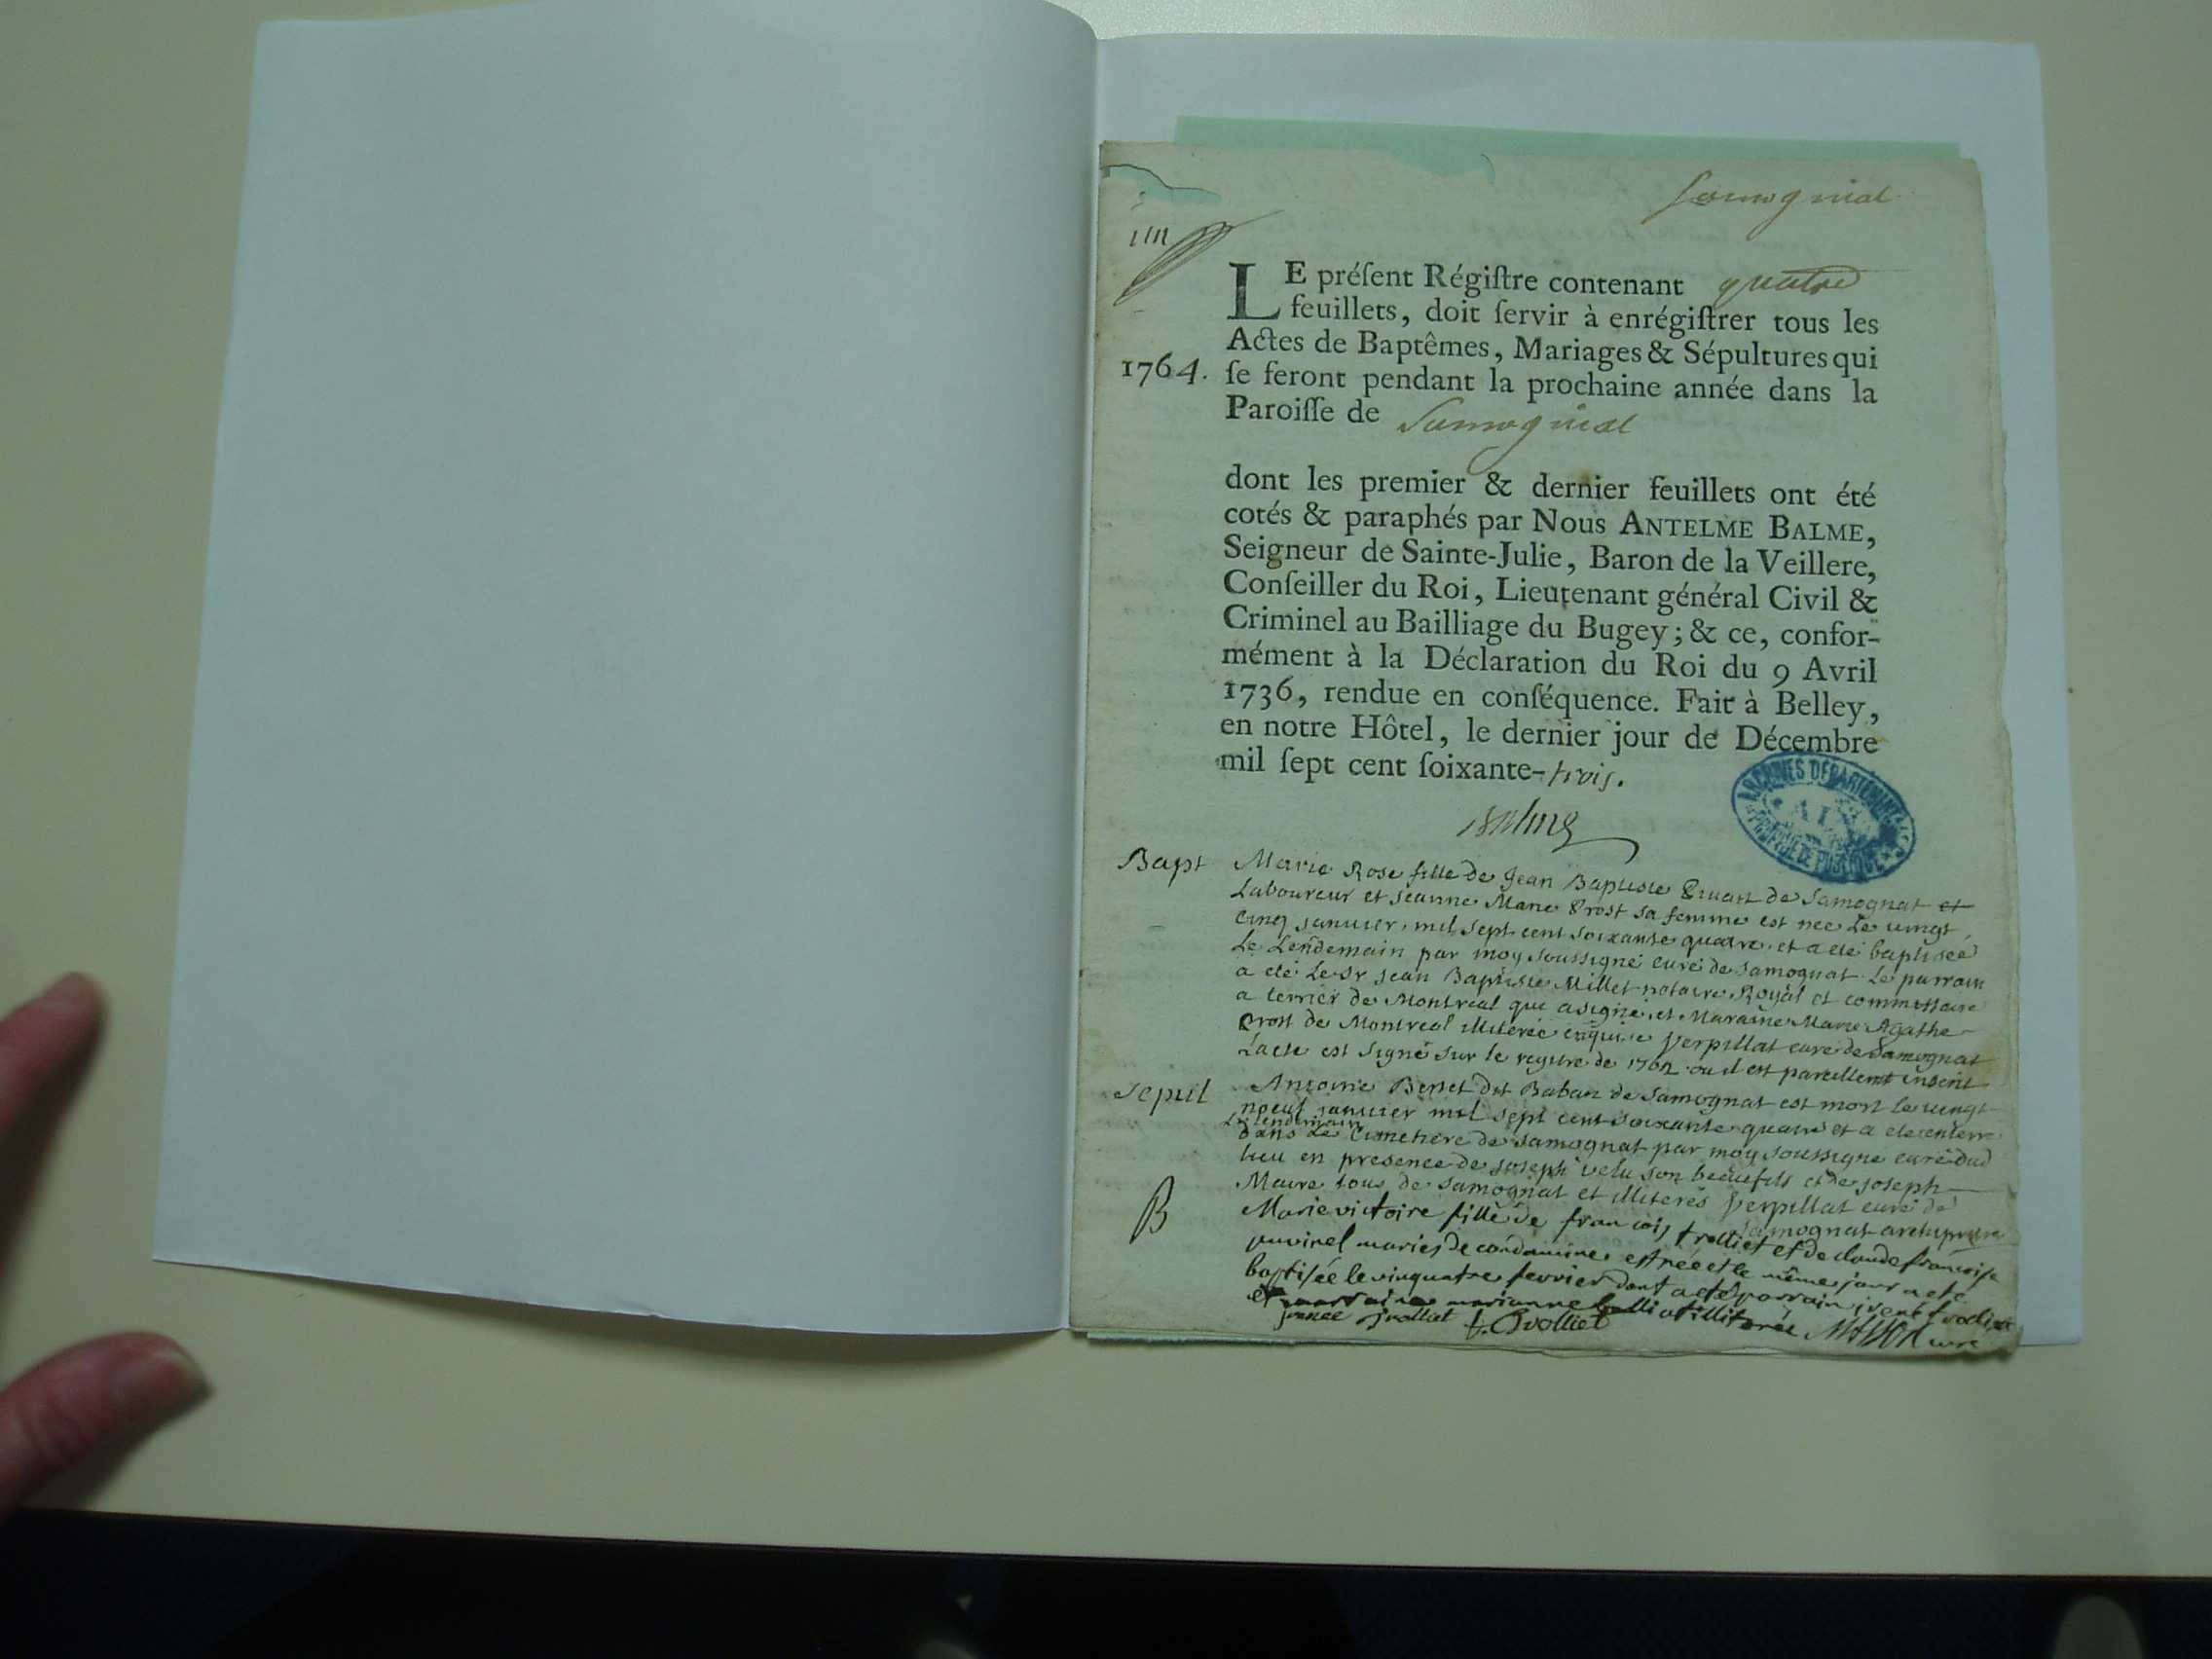 Samognial
un
LE préſent Régiſtre contenant quatre
feuillets, doit ſervir à enrégiſtrer tous les
Actes de Baptêmes, Mariages & Sépultures qui
1764. ſe feront pendant la prochaine année dans la
Paroiſſe de Samognial
dont les premier & dernier feuillets ont été
cotés & paraphés par Nous ANTELME BALME,
Seigneur de Sainte-Julie, Baron de la Veillere,
Conſeiller du Roi, Lieutenant général Civil &
Criminel au Bailliage du Bugey; & ce, confor-
mément à la Déclaration du Roi du 9 Avril
1736, rendue en conſéquence. Fait à Belley,
en notre Hôtel, le dernier jour de Décembre
mil ſept cent ſoixante-trois.
Balme
ARCHIVES DEPARTEMENTALES
AIN
PROPRIETE PUBLIQUE
Bapt Marie Rose fille de Jean Baptiste de Samognat et
Laboureur et jeanne Marie Prost sa femme est nee le vingt
cinq janvier mil sept cent soixante quatre et a eté baptisée
le lendemain par moy soussigné curé de samognat le parrain
a eté le Sr jean Baptiste Millet notaire Royal et commissaire
a terrier de Montreal qui a signé et Maraine Marie Agathe
Prost de Montreal illiterée enquise Verpillat curé de Samognat
Lacte est signé sur le regitre de 1762 ou il est pareillemt inserit
Sepul Antoine Benet dit Baban de Samognat est mort le vingt
neuf janvier mil sept cent soixante quatre et a ete enterré
le lendemain
dans le Cimetiere de samognat par moy soussigne curé dud
lieu en presence de joseph velu son beaufils et de joseph
Maire tous de samognat et illiterés Verpillat curé de
samognat archipretre
B Marie victoire fille de francois trolliet et de claude francoise
juvinel maries de condamine est née et le même jour a eté
baptisée le vinquatre fevrier dont acte parrain
et marraine marianne illiterée curé
jolliet f. trolliet